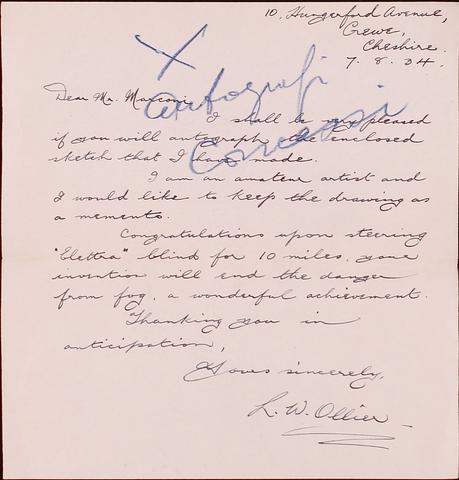 10, Hungerford Avenue,
Crewe,
Cheshire.
7. 8. 34.
X
Autografi
Concessi
Dear Mr. Marconi
I shall be very pleased
if you will autograph the enclosed
sketch that I have made.
I am an amateur artist and
I would like to keep the drawing as
a memento.
Congratulations upon steering
"Elettra" blind for 10 miles, your
invention will end the danger
from fog, a wonderful achievement.
Thanking you in
anticipation,
Yours sincerely,
L. W. Ollier